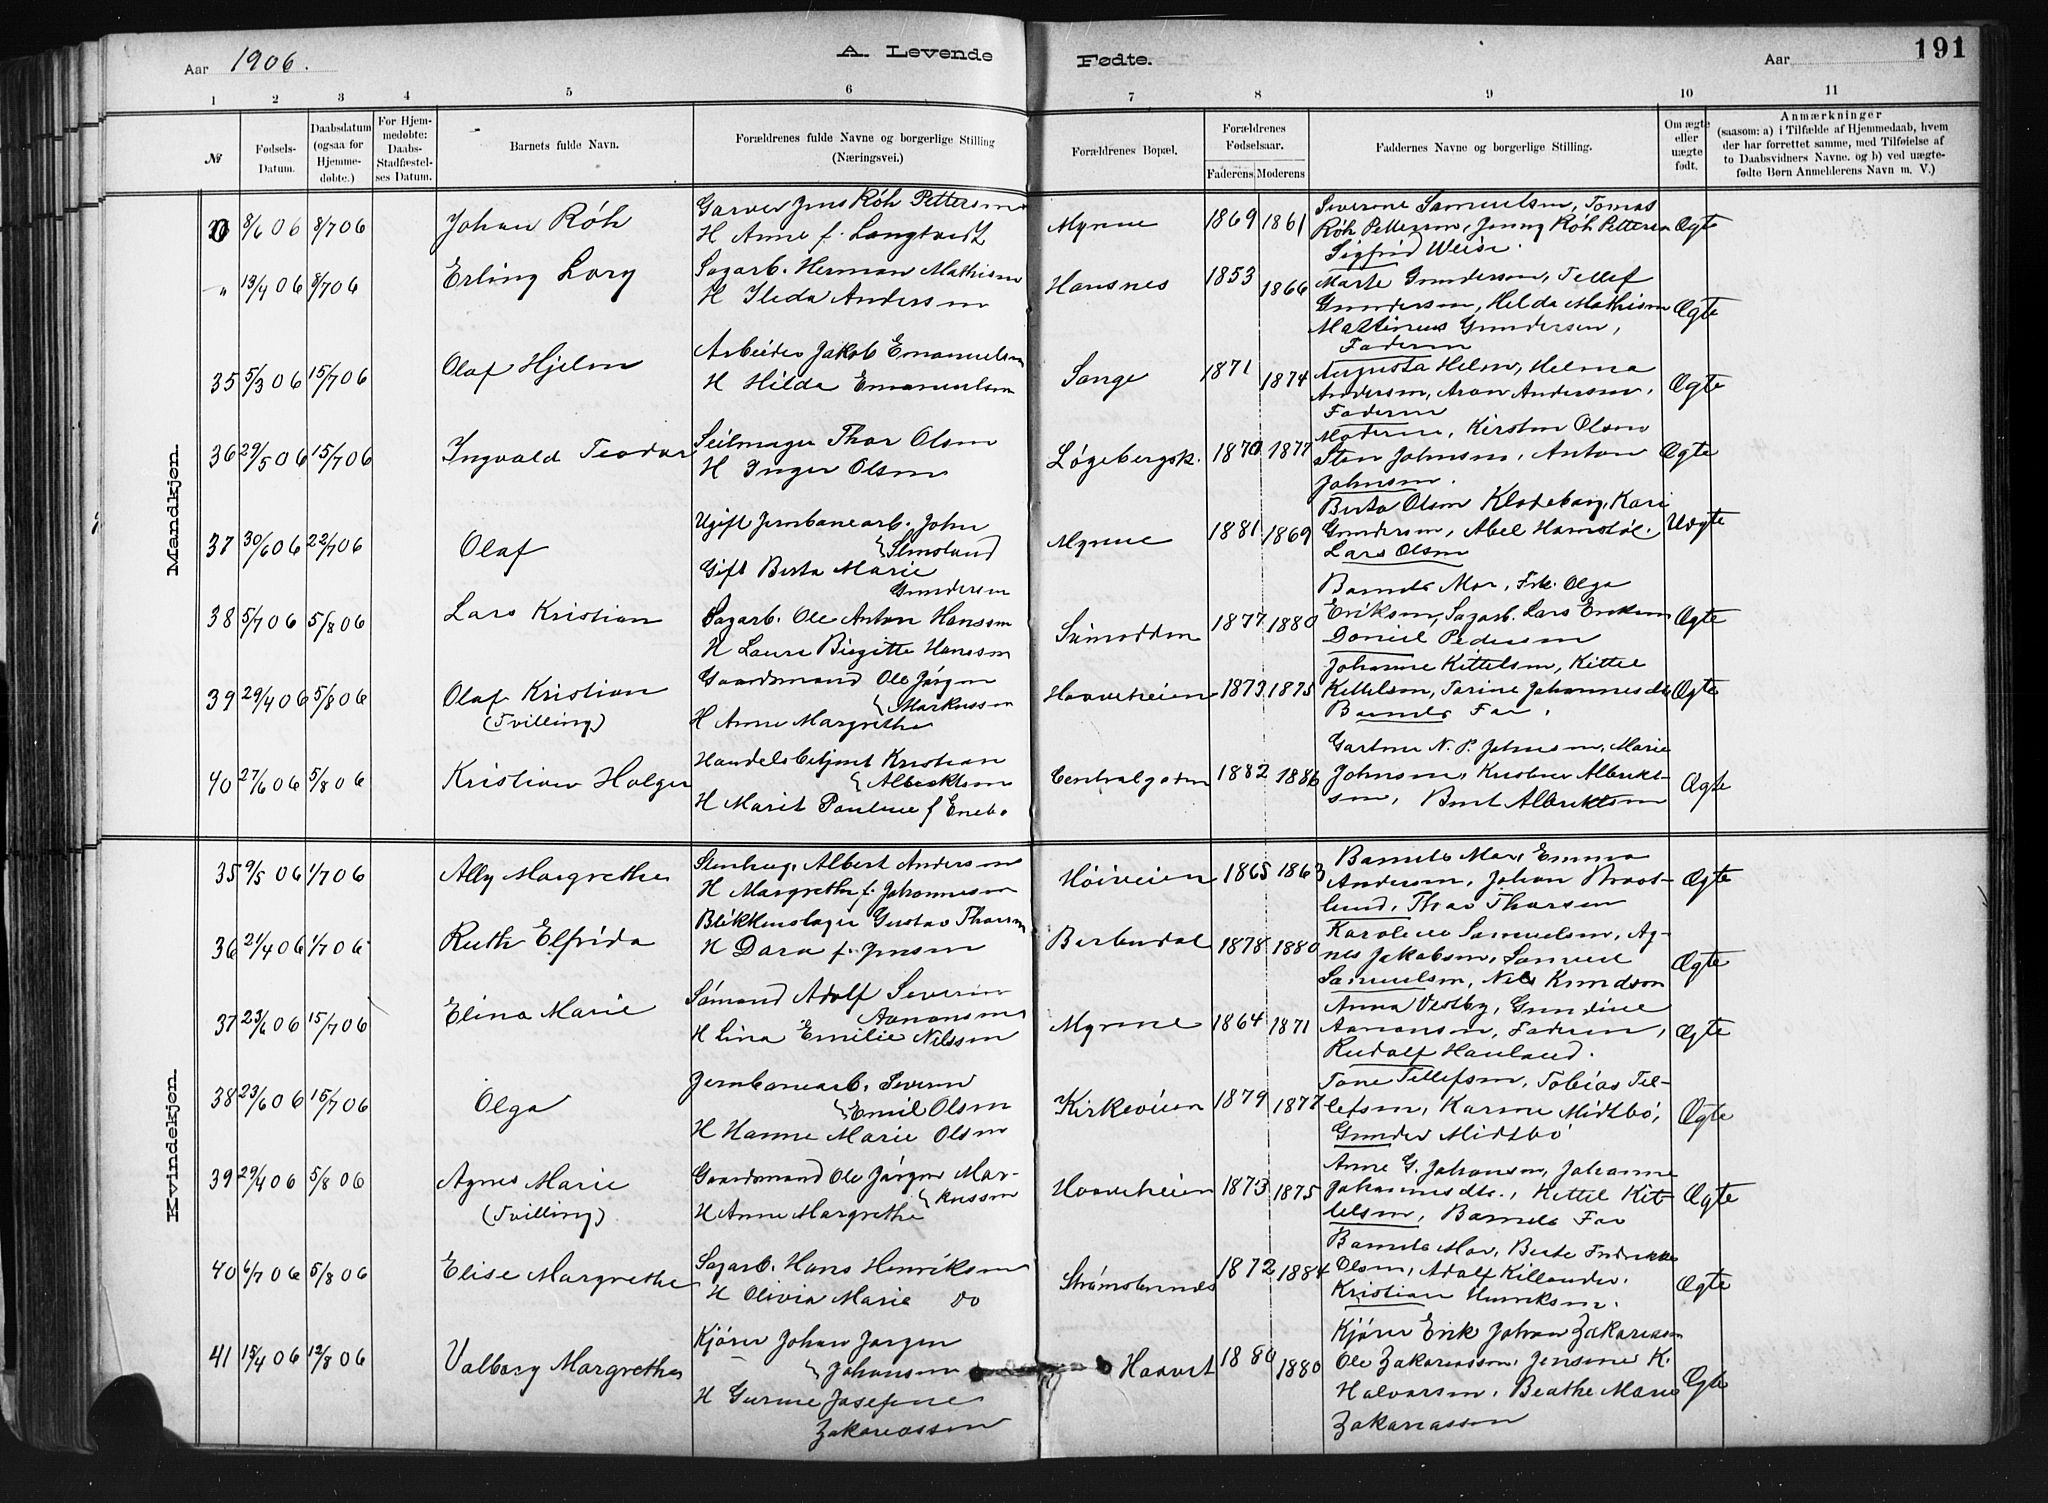 Aar 1906.
A. Levende
Fødte.
Aar
191
1 2 3 4 5 6 7 8 9 10 11
№
Fødsels-Datum.
Daabsdatum (ogsaa for Hjemme-døbte.)
For Hjem-medøbte: Daabs-Stadfæstel-ses Datum.
Barnets fulde Navn.
Forældrenes fulde Navne og borgerlige Stilling (Næringsvei.)
Forældrenes Bopæl.
Forældrenes Fødselsaar.
Faderens Moderens
Faddernes Navne og borgerlige Stilling.
Om ægte eller uægte født.
Anmærkninger
(saasom: a) i Tilfælde af Hjemmedaab, hvem
der har forrettet samme, med Tilføielse af
to Daabsvidners Navne. og b) ved uægte-
fødte Børn Anmelderens Navn m. V.)
Mandkjøn.
8/6 06 8/7 06 Johan Röh
Garver Jens Röh Pettersen
H Anne f. Langtvedt
Myrene 1869 1861
Severine Samuelsen, Tomas
Röh Pettersen, Jenny Röh Pettersen
Sigfrid Weise.
Ægte
" 13/4 06 8/7 06 Erling Lorg
Sagarb. Herman Mathisen
H Ilida Andersen
Hansnes 1853 1866
Marte Gundersen, Tellef
Gundersen, Helda Mathisen
Mattineus Gundersen,
Faderen
Ægte
35 5/3 06 15/7 06 Olaf Hjelm
Arbeider Jakob Emanuelsen
H Hilda Emanuelsen
Songe 1871 1874
Augusta Helm, Helma
Andersen, Aron Andersen,
Faderen
Ægte
36 29/5 06 15/7 06 Ingvald Teodor
Seilmager Thor Olsen
H Inger Olsen
Løgebergsk. 1870 1877
Moderen, Kirsten Olsen
Sten Johnsen, Anton
Johnsen.
Ægte
37 30/6 06 22/7 06 Olaf
Ugift Jernbanearb. John
Gift Berta Marie
Gundersen
Myrene 1881 1869
Berta Olsen Klodeborg, Kari
Gundersen, Abel
Lars Olsen
Uægte
38 5/7 06 5/8 06 Lars Kristian
Sagarb. Ole Anton Hansen
H Laura Birgitte Hansen
Sømodden 1877 1880
Barnets Mor, Frk. Olga
Eriksen, Sagarb. Lars Eriksen
Daniel Pedersen
Ægte
39 29/4 06 5/8 06 Olaf Kristian
(Tvilling)
Gaardmand Ole Jörgen
Markusson
H Anne Margrethe
Haaveheien 1873 1875
Johanne Kittelsen, Kittel
Kittelsen, Tarine Johannesdtr
Barnets Far.
Ægte
40 27/6 06 5/8 06 Kristian Holger
Handelsbetjent Kristian
Albrektsen
H Marit Pauline f Enebo
Centralgaden 1882 1886
Gartner N. P. Johnsen, Marie
Johnsen, Kristine Albrekt-
sen, Albrektsen
Ægte
Kvindekjøn.
35 9/5 06 1/7 06 Ally Margrethe
Stenhug. Albert Andersen
H Margrethe f. Johannesen
Höiveien 1865 1863
Barnets Mor, Emma
Andersen, Johan Braat-
lund, Thor Thorsen
Ægte
36 21/4 06 1/7 06 Ruth Elfrida
Blikkenslager Gustav Thorsen
H Dara f. Jensen
Barbudal 1878 1880
Karoline Samuelsen, Ag-
nes Jakobsen, Samuel
Samuelsen, Nils Knudson
Ægte
37 23/6 06 15/7 06 Elina Marie
Sömand Adolf Severin
Aanonsen
H Lina Emilie Nilssen
Myrene 1864 1871
Anna Vestby, Gundine
Aanonsen, Faderen,
Rudolf Hauland.
Ægte
38 23/6 06 15/7 06 Olga
Jernbanearb. Severin
Emil Olsen
H Hanne Marie Olsen
Kirkeveien 1879 1877
Tone Tellefsen, Tobias Tel-
lefsen, Karine Midtbö,
Gunder Midtbö
Ægte
39 29/4 06 5/8 06 Agnes Marie
(Tvilling)
Gaardmand Ole Jörgen Mar-
kusson
H Anne Margrethe
Haaveheien 1873 1875
Anne G. Johansen, Johanne
Johannesdtr., Kittel Kit-
telsen, Barnets Far
Ægte
40 6/7 06 5/8 06 Elise Margrethe
Sagarb. Hans Henriksen
H Olivia Marie do
Strömsbunes 1872 1884
Barnets Mor, Berte Fredrikke
Olsen, Adolf Killander,
Kristian Henriksen.
Ægte
41 15/4 06 12/8 06 Valborg Margrethe
Kjörer Johan Jörgen
Johansen
H Gurine Josefine
Zakariassen
Haavet 1880 1880
Kjörer Erik Johan Zakariassen
Ole Zakariassen, Jensine K.
Halvorsen, Beathe Marie
Zakariassen
Ægte